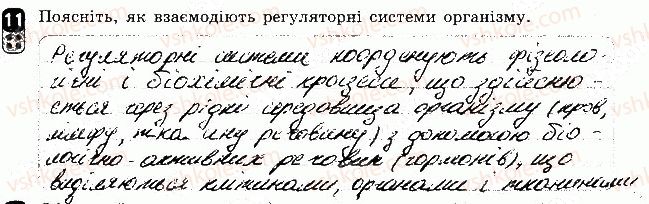 11 Поясніть, як взаємодіють регуляторні системи організму.
Регуляторні системи координують фізіоло-
гічні і біохімічні процеси, що здійсню-
ється через рідкі середовища організму (кров,
лімфу, тканинну речовину) з допомогою біо-
логічно-активних речовин (гормонів), що
виділяються клітинами, органами і тканинами
11